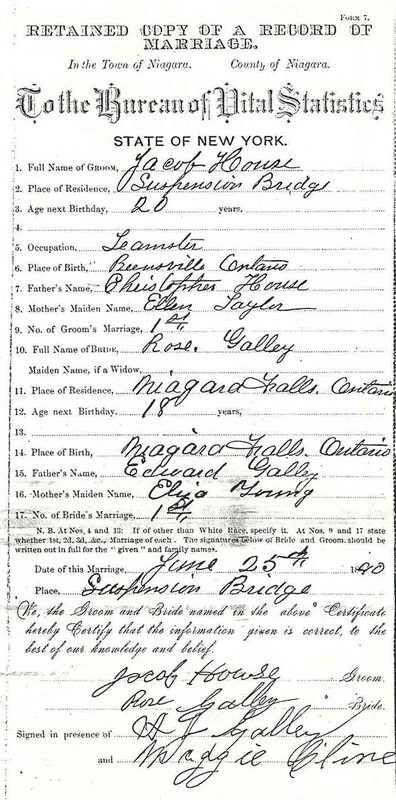 FORM 7.
RETAINED COPY OF A RECORD OF
MARRIAGE.
In the Town of Niagara. County of Niagara.
To the Bureau of Vital Statistics
STATE OF NEW YORK.
1. Full Name of GROOM, Jacob House
2. Place of Residence, Suspension Bridge
3. Age next Birthday, 20 years,
4.
5. Occupation, Teamster
6. Place of Birth, Beemsville Ontario
7. Father's Name, Christopher House
8. Mother's Maiden Name, Ellen Taylor
9. No. of Groom's Marriage, 1st
10. Full Name of BRIDE, Rose. Galley
Maiden Name, if a Widow,
11. Place of Residence, Niagara Falls. Ontario
12. Age next Birthday. 18 years,
13.
14. Place of Birth, Niagara Falls. Ontario
15. Father's Name, Edward Gally
16. Mother's Maiden Name, Eliza Young
17. No. of Bride's Marriage, 1st
N. B. At Nos. 4 and 13: If of other than White Race, specify it. At Nos. 9 and 17 state
whether 1st, 2d, 3d, &c., Marriage of each. The signatures below of Bride and Groom. should be
written out in full for the "given" and family names.
Date of this Marriage, June 25th 1890
Place, Suspension Bridge
We, the Groom and Bride named in the above Certificate
hereby Certify that the information given is correct, to the
best of our knowledge and belief.
Jacob House Groom.
Rose Galley Bride.
Signed in presence of H J Galley
and Maggie Cline